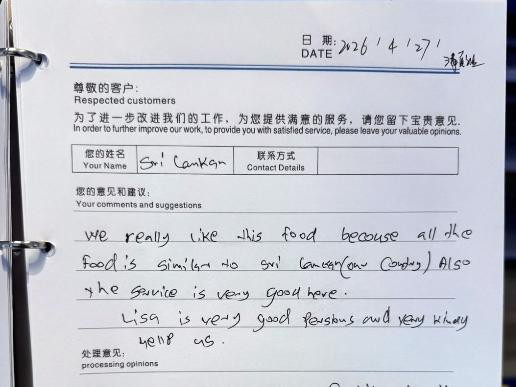 日 期:
DATE 2026 / 4 / 27 /
尊敬的客户:
Respected customers
为了进一步改进我们的工作，为您提供满意的服务，请您留下宝贵意见.
In order to further improve our work, to provide you with satisfied service, please leave your valuable opinions.
您的姓名 Sri Lankan 联系方式
Your Name Contact Details
您的意见和建议:
Your comments and suggestions
we really like this food becouse all the
food is similar to sri lankan (our Country) Also
the service is very good here.
Lisa is very good persons and very kindly
help us.
处理意见:
processing opinions